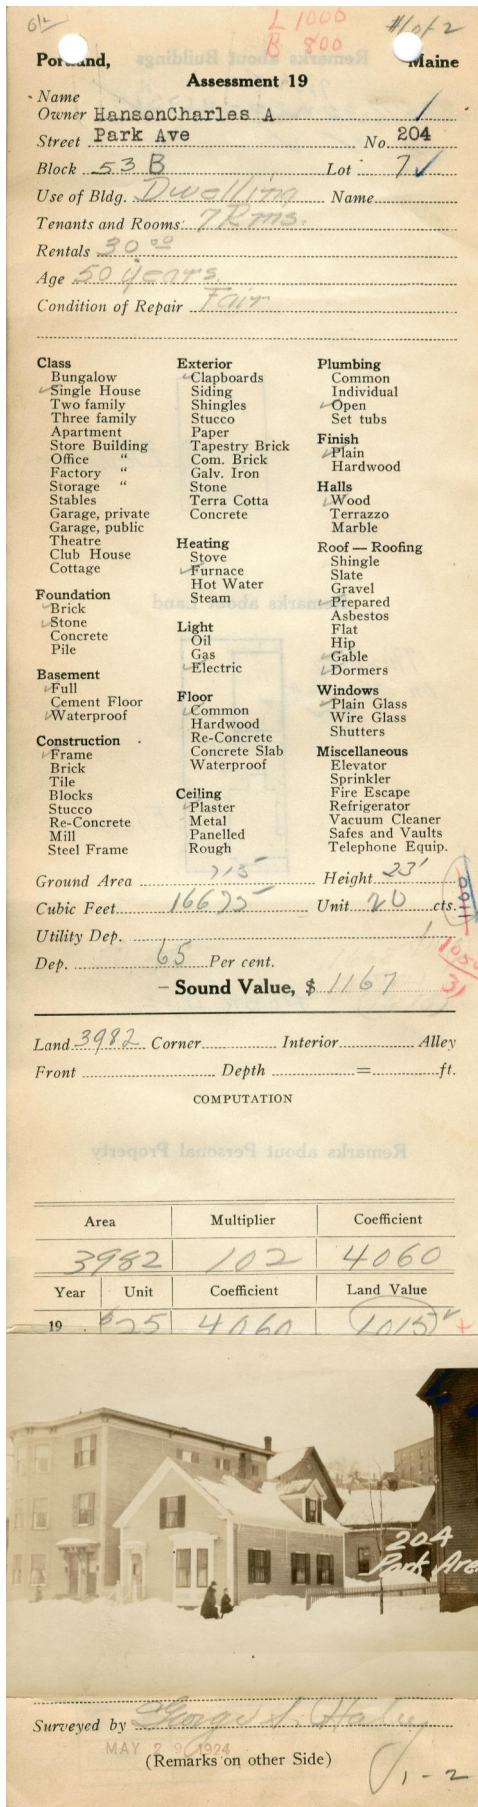 6/2
L 1000
B 800
#1 of 2
Portland, Maine
Assessment 19
Name
Owner HansonCharles A
Street Park Ave No. 204
Block 53 B Lot 7
Use of Bldg. Dwelling Name
Tenants and Rooms 7 Rms.
Rentals 30 00
Age 50 years
Condition of Repair Fair
Class
Bungalow
Single House
Two family
Three family
Apartment
Store Building
Office "
Factory "
Storage "
Stables
Garage, private
Garage, public
Theatre
Club House
Cottage
Foundation
Brick
Stone
Concrete
Pile
Basement
Full
Cement Floor
Waterproof
Construction
Frame
Brick
Tile
Blocks
Stucco
Re-Concrete
Mill
Steel Frame
Exterior
Clapboards
Siding
Shingles
Stucco
Paper
Tapestry Brick
Com. Brick
Galv. Iron
Stone
Terra Cotta
Concrete
Heating
Stove
Furnace
Hot Water
Steam
Light
Oil
Gas
Electric
Floor
Common
Hardwood
Re-Concrete
Concrete Slab
Waterproof
Ceiling
Plaster
Metal
Panelled
Rough
Plumbing
Common
Individual
Open
Set tubs
Finish
Plain
Hardwood
Halls
Wood
Terrazzo
Marble
Roof — Roofing
Shingle
Slate
Gravel
Prepared
Asbestos
Flat
Hip
Gable
Dormers
Windows
Plain Glass
Wire Glass
Shutters
Miscellaneous
Elevator
Sprinkler
Fire Escape
Refrigerator
Vacuum Cleaner
Safes and Vaults
Telephone Equip.
Ground Area 715 Height 23'
Cubic Feet 16675 Unit 20 cts.
1100
Utility Dep.
1050
Dep. 65 Per cent.
31
Sound Value, $ 1167
Land 3982 Corner Interior Alley
Front Depth = ft.
COMPUTATION
Area Multiplier Coefficient
3982 102 4060
Year Unit Coefficient Land Value
19 $25 4060 1015
204
Park Ave
Surveyed by George S. Haley
MAY 29 1924
(Remarks on other Side)
1 - 2